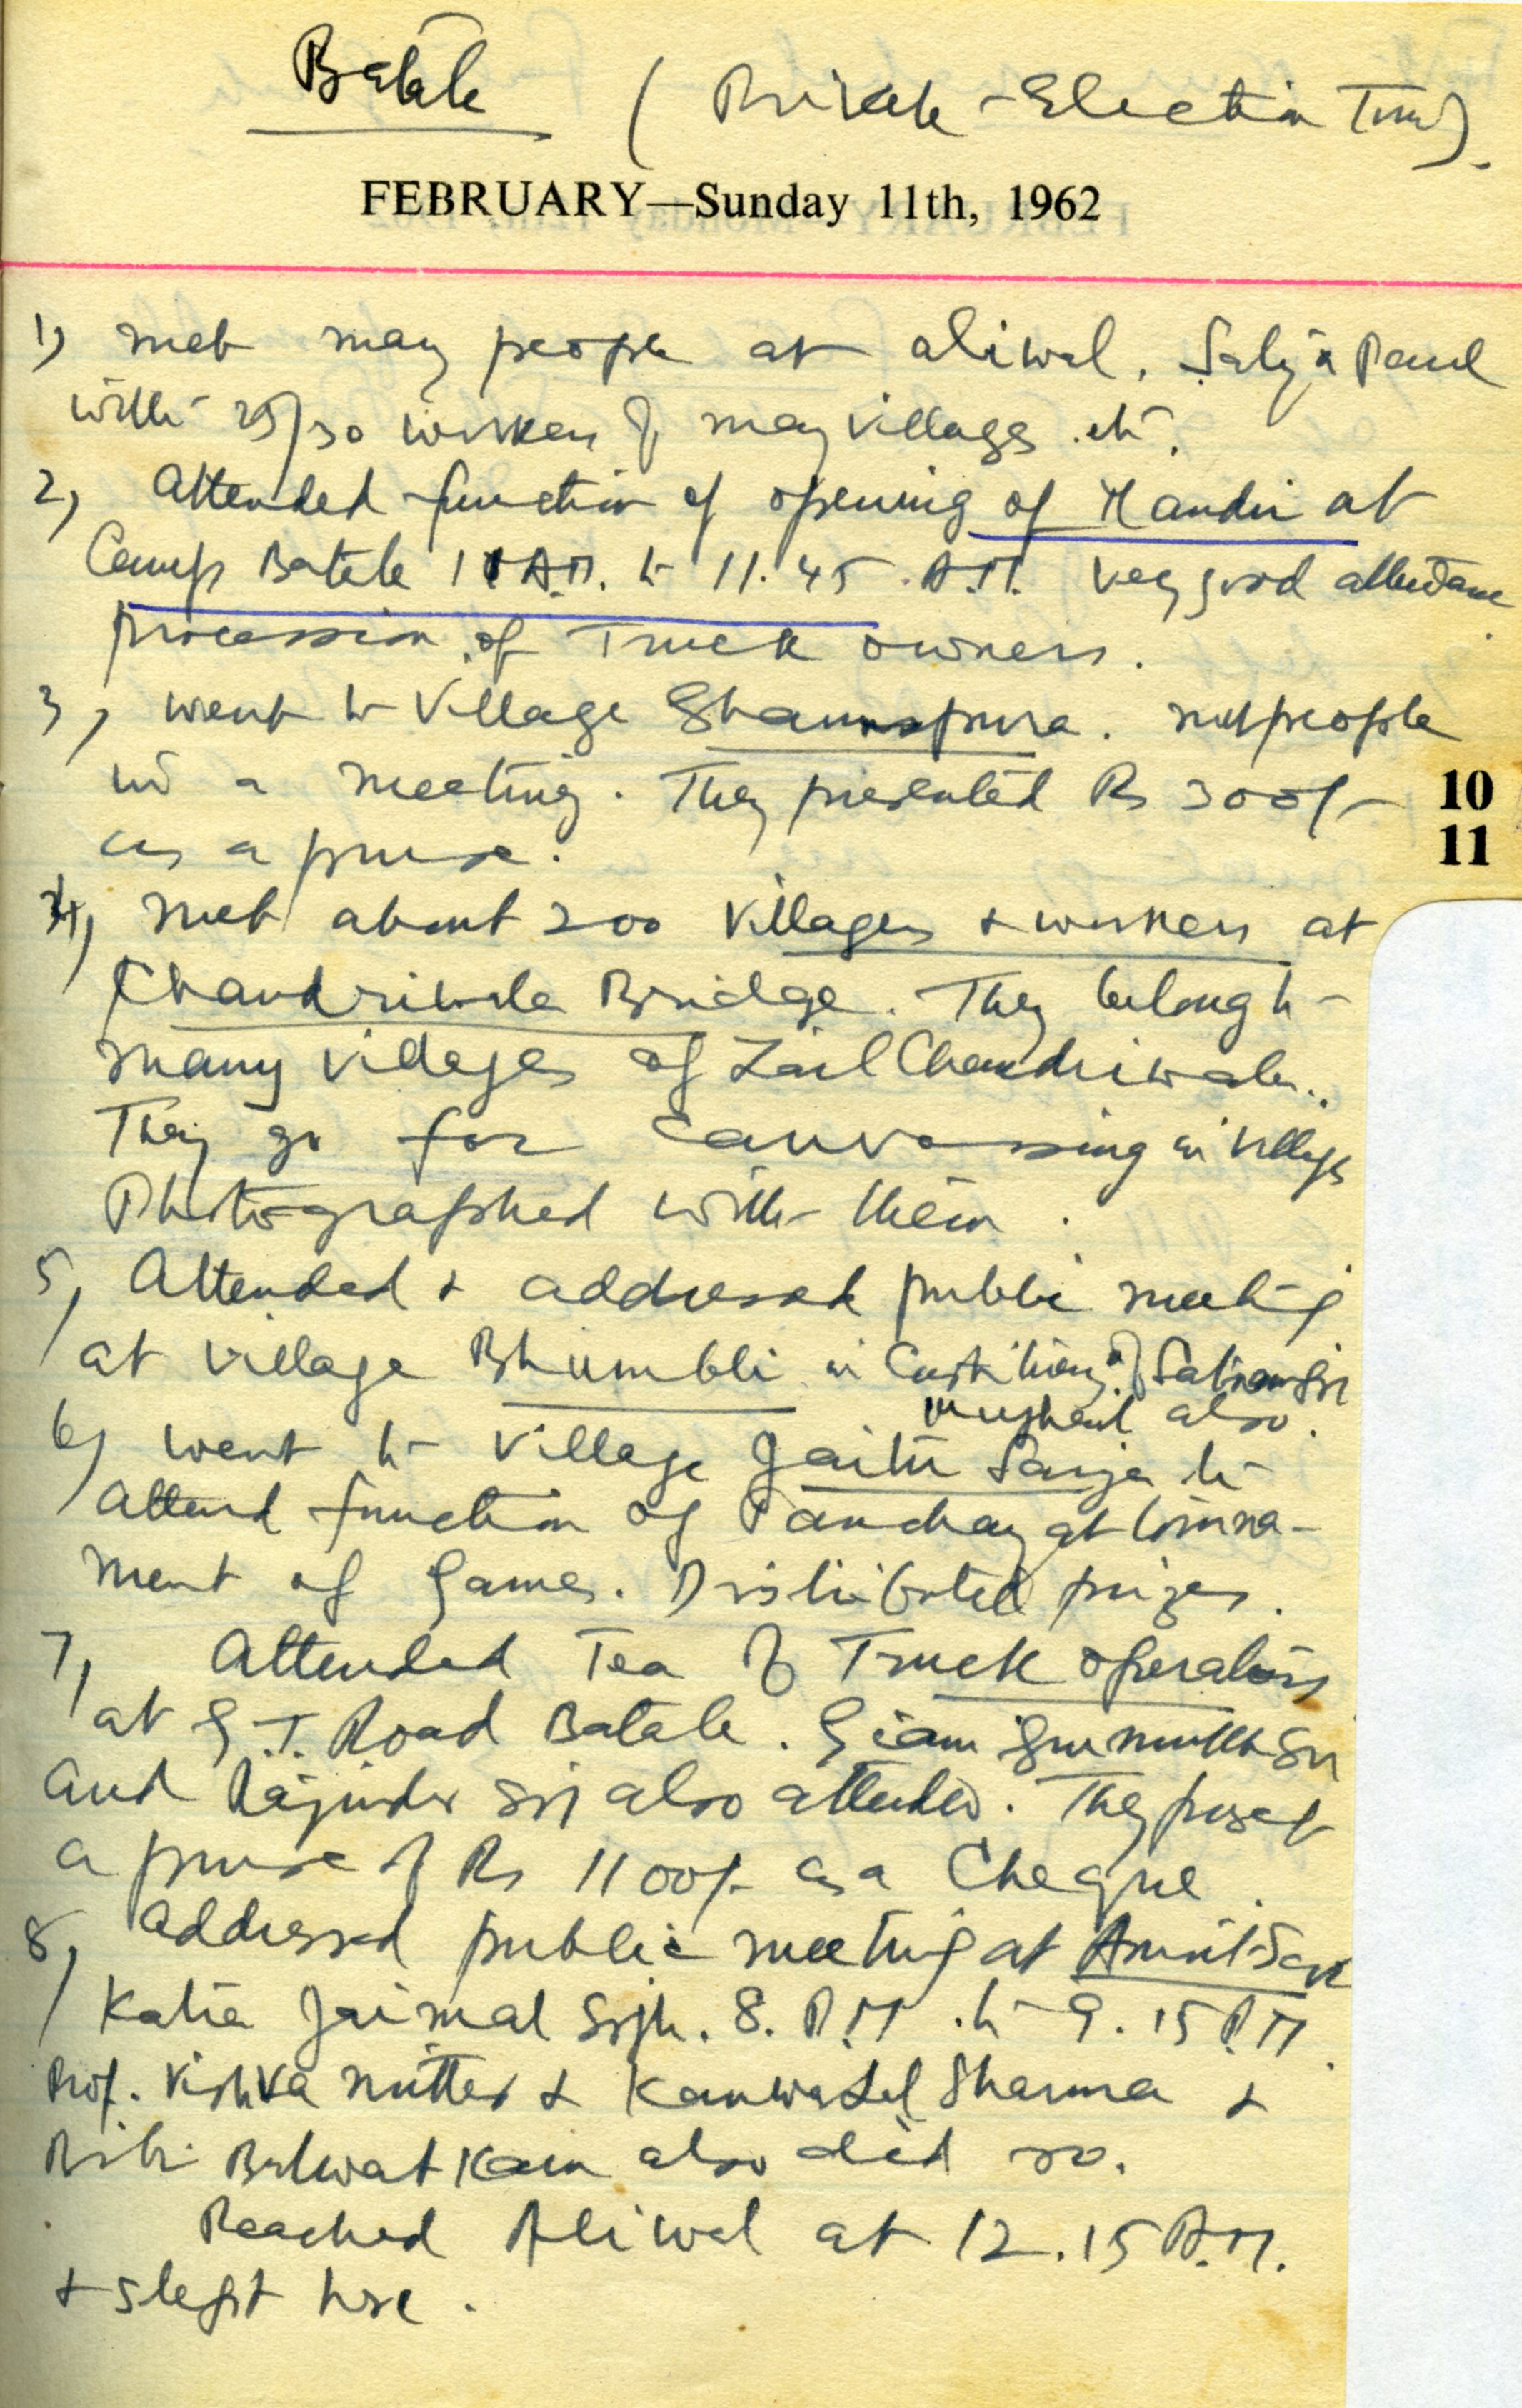 Batala (Private - Election Tour).
FEBRUARY—Sunday 11th, 1962
1) met many people at Aliwal. Satya Paul
with 25/30 workers of many villages etc.
2) Attended function of opening of Mandir at
Camp Batala 11 A.M. to 11.45 A.M. Very good attendance
procession of Truck owners.
3) went to Village Shamspura. met people
in a meeting. They presented Rs 300/-
as a purse.
4) met about 200 Villagers & workers at
Chandriwala Bridge. They belong to
many villages of Zail Chandriwala.
They go for canvassing in villages
Photographed with them.
5) Attended & addressed public meeting
at village Bhumbli in Constituency of Satnam Singh
also.
6) went to village Jaito Sarja to
attend function of Panchayat tourna-
ment of Games. Distributed prizes.
7) Attended Tea of Truck operators
at G.T. Road Batala. Giani Gurmukh Singh
and Rajinder Singh also attended. They present
a purse of Rs 1100/- as a Cheque.
8) Addressed public meeting at Amritsar
Katra Jaimal Singh. 8. P.M. to 9.15 P.M.
Prof. Vishva mitter & Kanwar Lal Sharma &
Bibi Balwat Kaur also did so.
Reached Aliwal at 12.15 A.M.
& slept here.
10
11